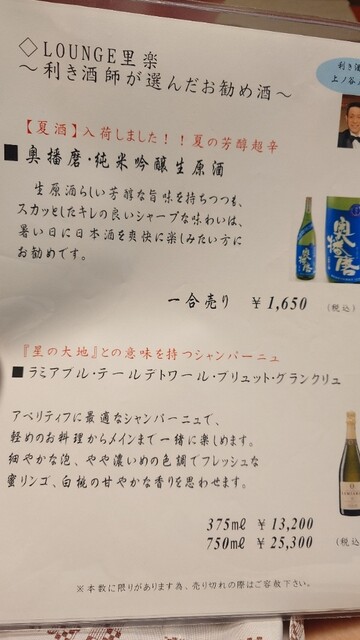 ◇LOUNGE里楽
～利き酒師が選んだお勧め酒～
利き酒
上ノ谷
【夏酒】入荷しました！！夏の芳醇超辛
■奥播磨・純米吟醸生原酒
生原酒らしい芳醇な旨味を持ちつつも、
スカッとしたキレの良いシャープな味わいは、
暑い日に日本酒を爽快に楽しみたい方に
お勧めです。
奥播磨
奥播磨
一合売り ￥1,650 (税込)
『星の大地』との意味を持つシャンパーニュ
■ラミアブル・テールデトワール・ブリュット・グランクリュ
アペリティフに最適なシャンパーニュで、
軽めのお料理からメインまで一緒に楽しめます。
細やかな泡、やや濃いめの色調でフレッシュな
蜜リンゴ、白桃の甘やかな香りを思わせます。
375㎖ ￥13,200
750㎖ ￥25,300 (税込
※本数に限りがあります為、売り切れの際はご容赦下さい。